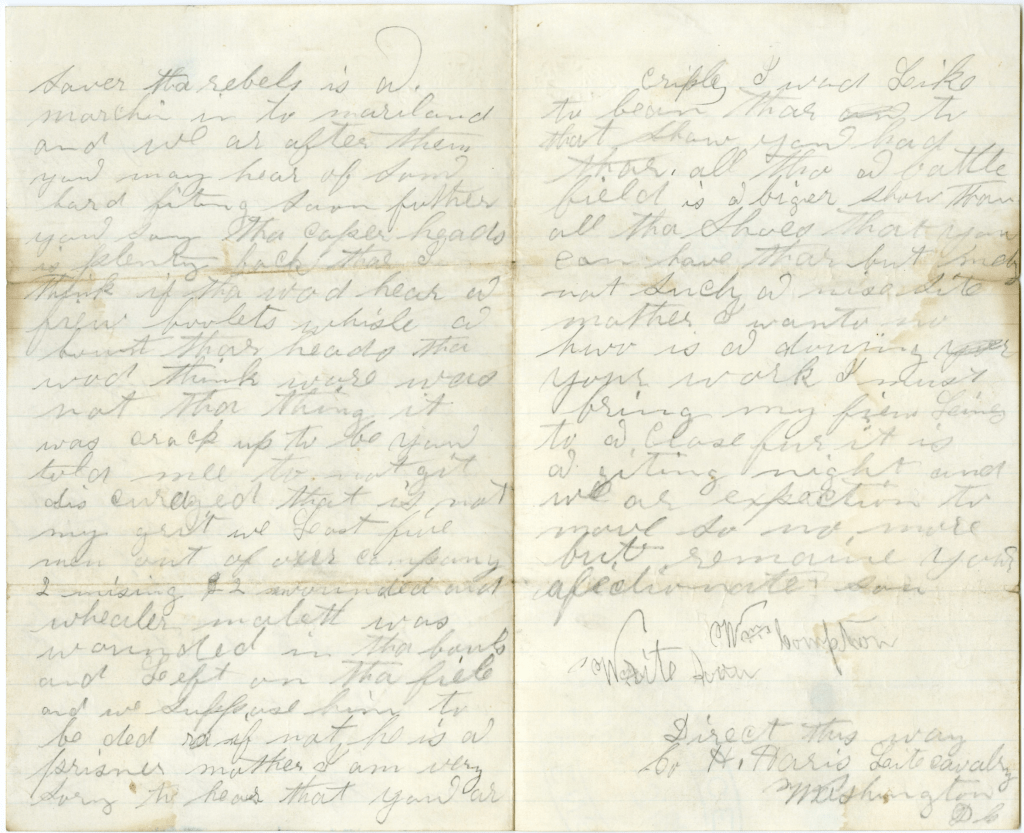 saver tha rebels is a
marchin in to mariland
and we ar after them
you may hear of som
hard fiting soon father
you say tha coper heads
is plenty back thar I
think if tha wod hear a
frew boolets whisle a
bout thar heads tha
wod think ware was
not tha thing it
was crack up to be you
told mee to not git
dis curaged that is not
my grit we Least five
men out of ower company
2 mising & 2 wounded and
whealer malett was
wounded in tha bouls
and Left on tha field
and we suppose him to
be ded if not he is a
prisner mother I am very
sory to hear that you ar
criple I wod Like
to bean thar to
that show you had
thar. all tho a battle
field is a biger show than
all tha Shoes that you
can have thar but
not such a
mother I wanto no
hwo is a douing
your work I must
bring my fiew Leines
to a Close fur it is
a giting night and
we ar expection to
move so no more
but remaine your
afectionate son
Wm Compton
Write soon
Direct this way
Co H. Haris Leite cavalry
Washington
D C